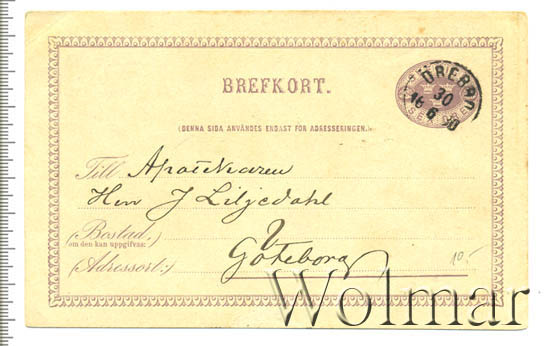 BREFKORT.
ÖREBRO
30
16 6 80
(DENNA SIDA ANVÄNDES ENDAST FÖR ADRESSERINGEN.)
Till Apotekaren
Herr J Liljedahl
(Bostad,
om den kan uppgifvas:)
Göteborg
(Adressort:)
10.-
Wolmar